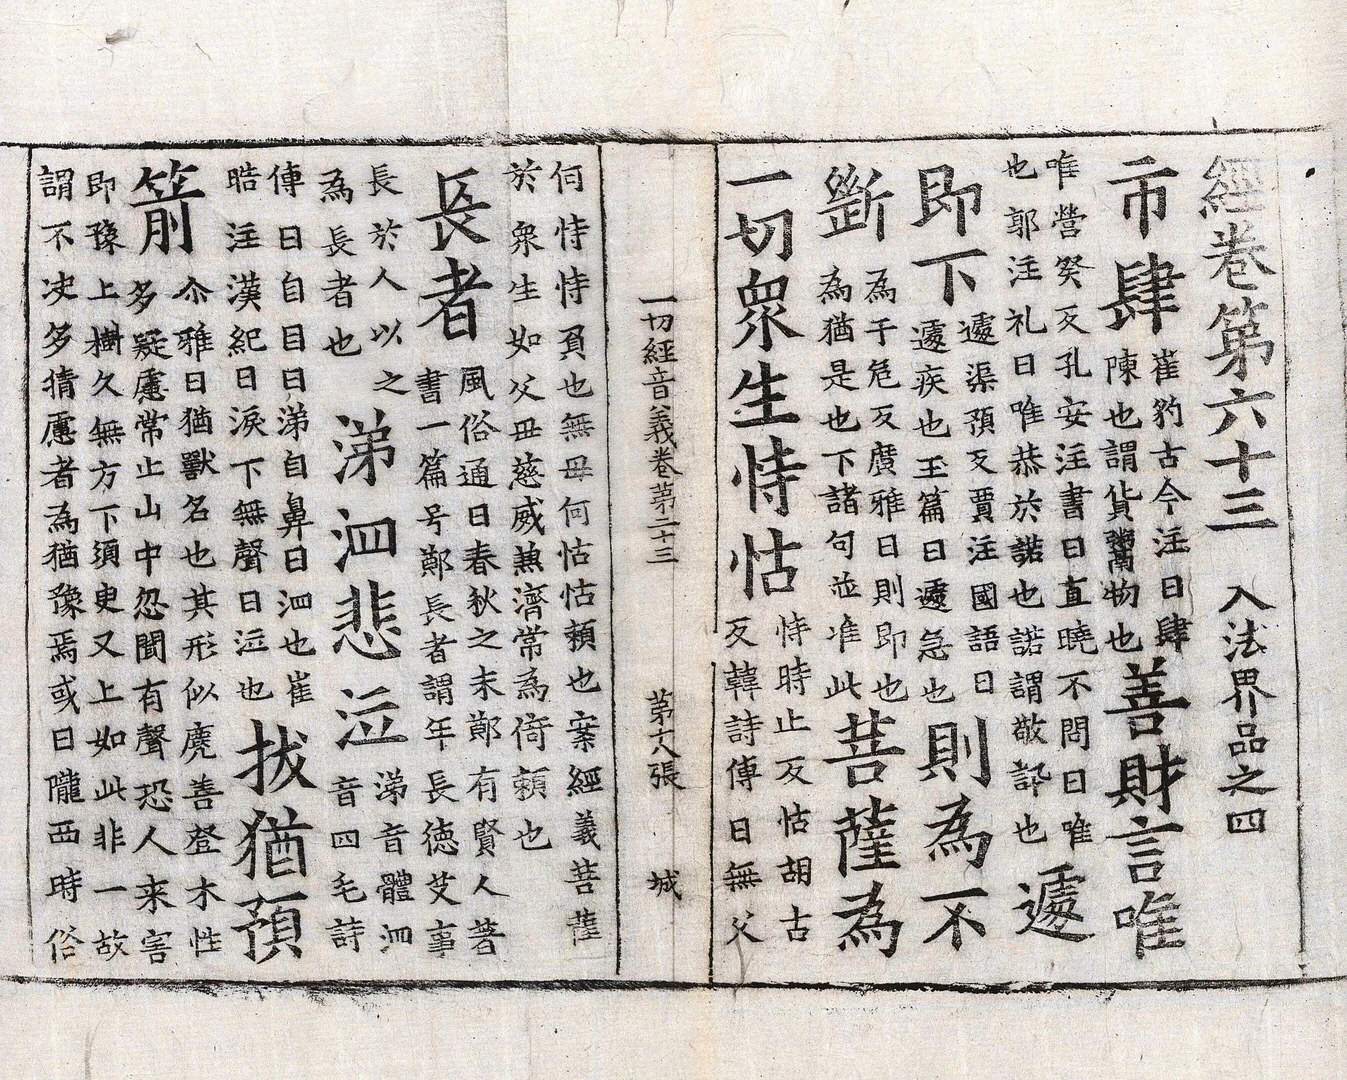 經卷第六十三 入法界品之四
市肆 崔豹古今注曰肆
陳也謂貨鬻物也 善財言唯
唯營癸反孔安注書曰直曉不問曰唯
也郭注礼曰唯恭於諾也諾謂敬詞也 遽
即下 遽渠預反賈注國語曰
遽疾也玉篇曰遽急也 則為不
斷 為于危反廣雅曰則即也
為猶是也下諸句並准此 菩薩為
一切眾生恃怙 恃時止反怙胡古
反韓詩傳曰無父
一切經音義卷第二十三 第十八張 城
何恃恃負也無母何怙怙賴也案經義菩薩
於眾生如父母慈威兼濟常為倚賴也
長者 風俗通曰春秋之末鄭有賢人著
書一篇号鄭長者謂年長德艾事
長於人以之
為長者也 涕泗悲泣 涕音體泗
音四毛詩
傳曰自目曰涕自鼻曰泗也崔
晧注漢紀曰淚下無聲曰泣也 拔猶預
箭 尒雅曰猶獸名也其形似麂善登木性
多疑慮常止山中忽聞有聲恐人来害
即豫上樹久無方下須臾又上如此非一故
謂不决多猜慮者為猶豫焉或曰隴西時俗